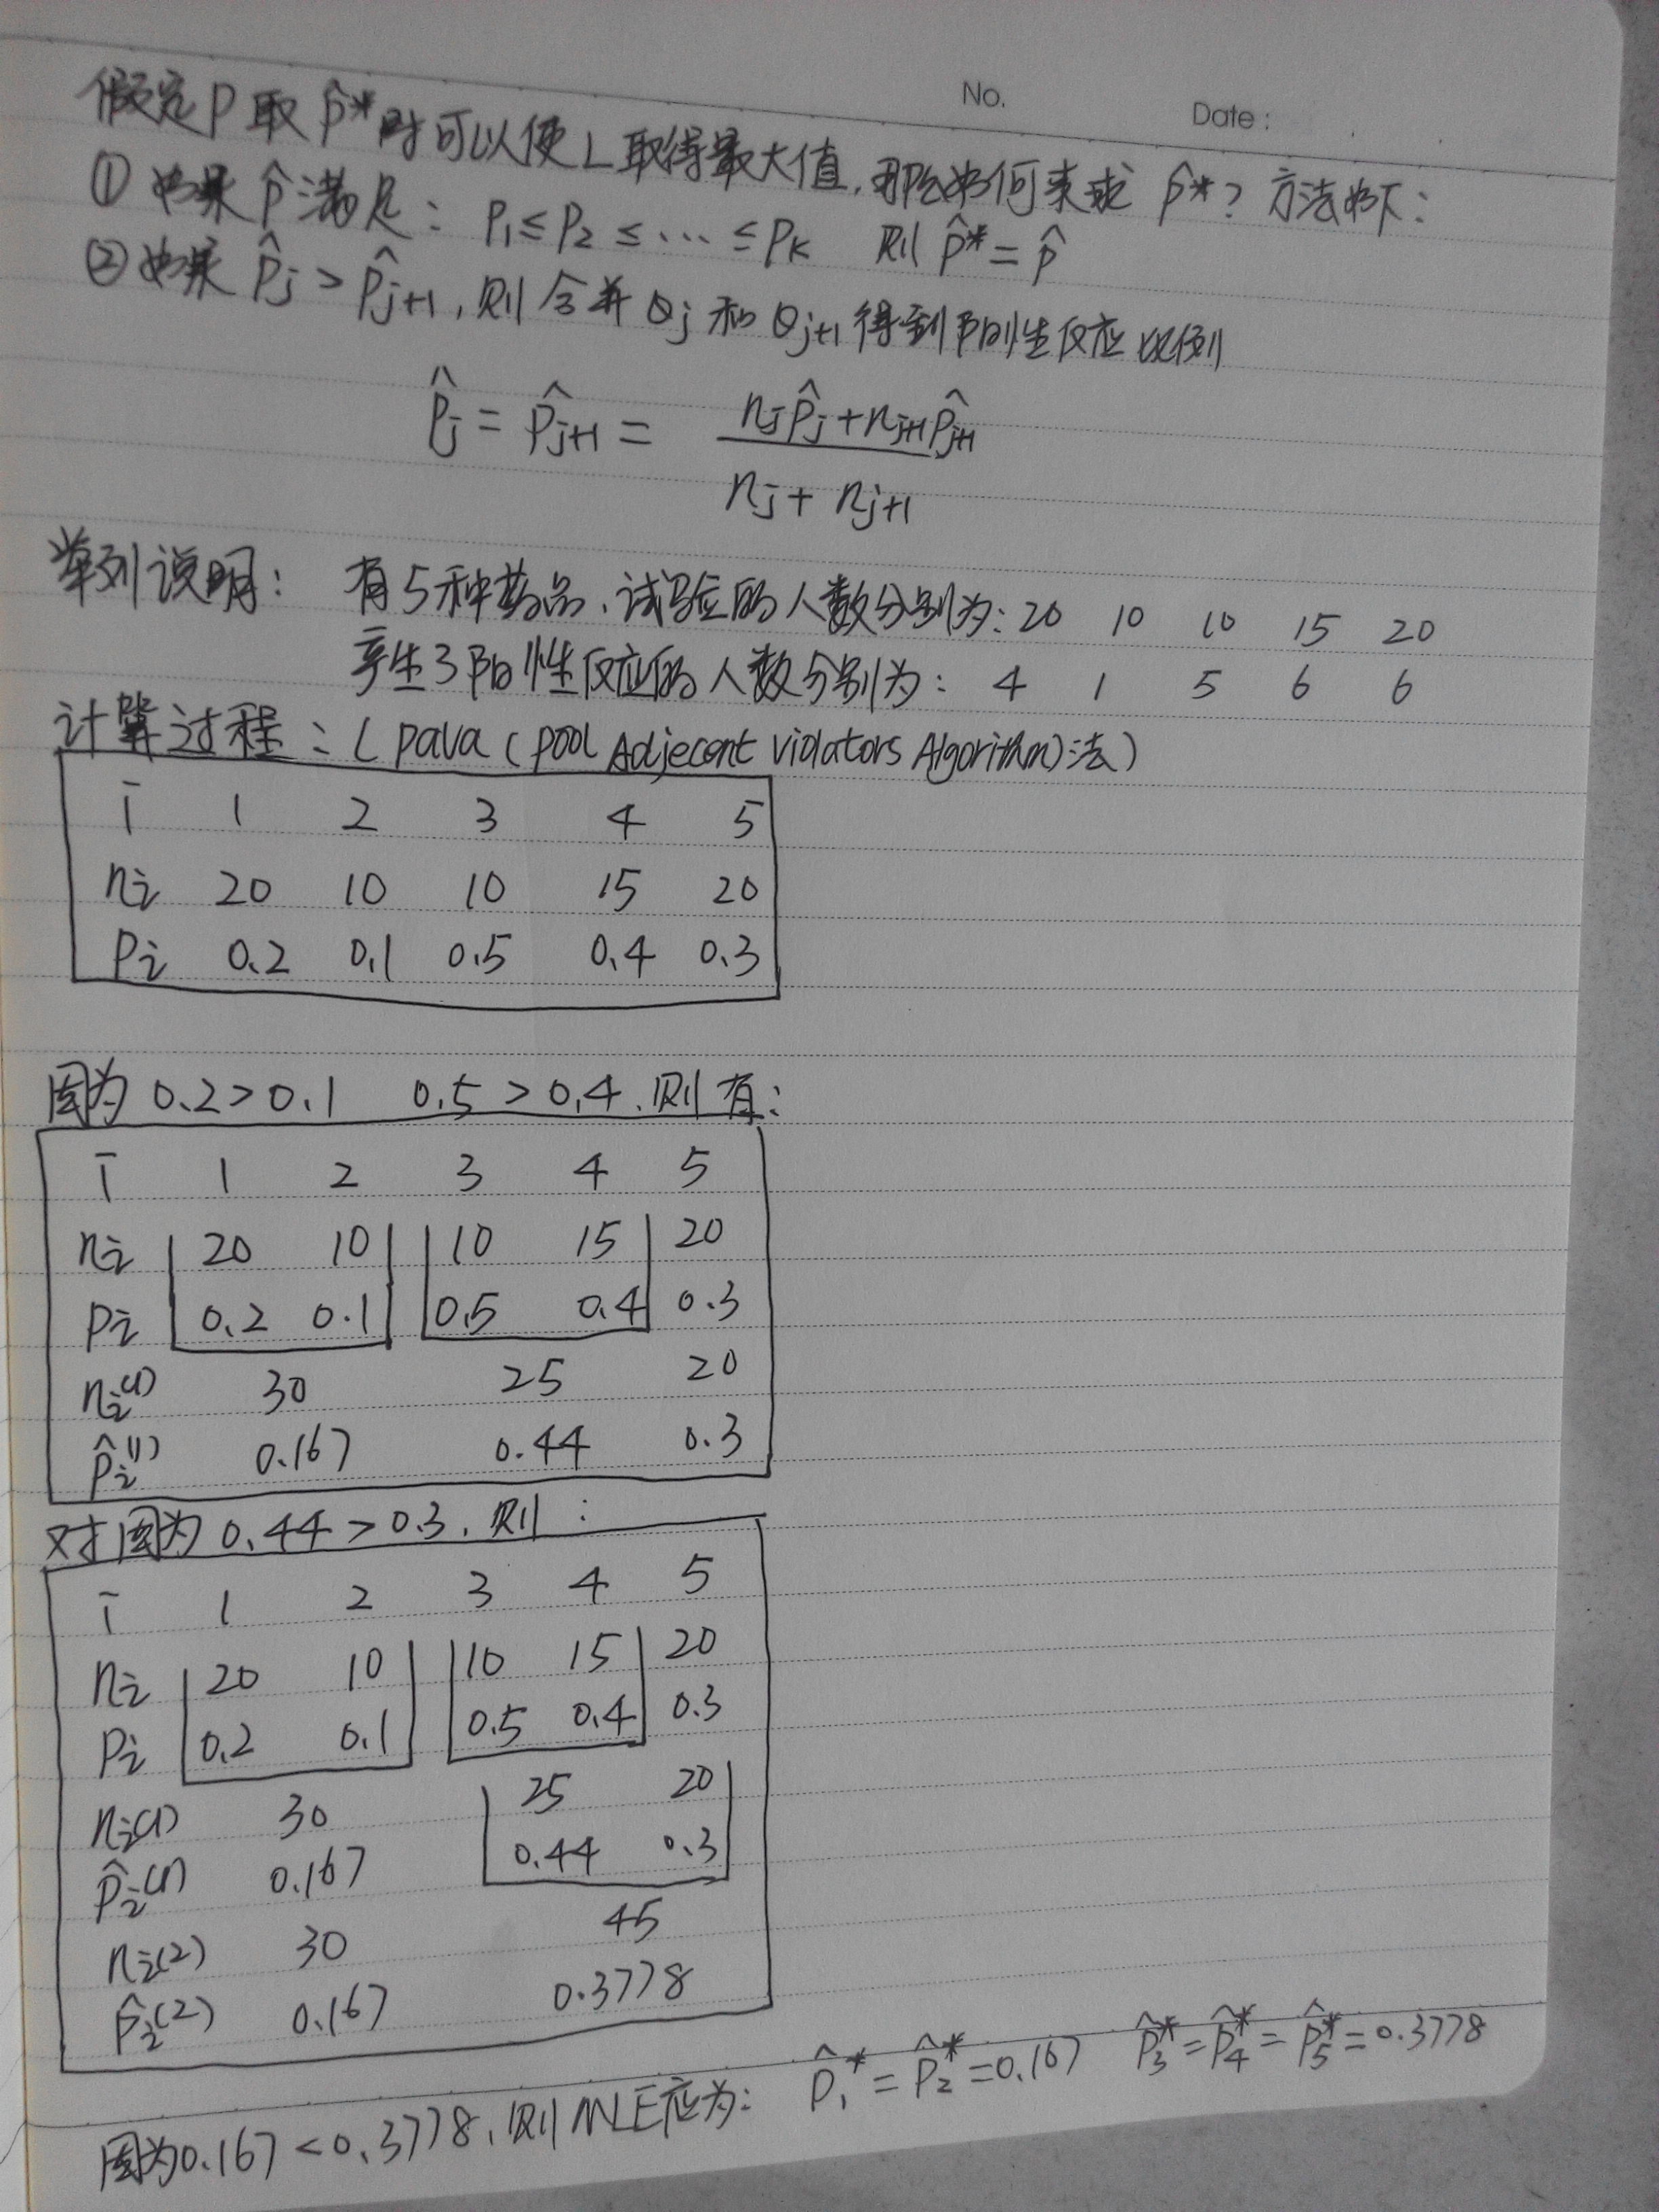 No.
Date:
假定P取p̂*时可以使L取得最大值,那么如何来求 p̂*? 方法如下:
① 如果p̂满足: p₁≤p₂≤…≤pₖ 则 p̂*=p̂
② 如果 p̂ⱼ > p̂ⱼ₊₁, 则合并θⱼ和θⱼ₊₁得到阳性反应比例
p̂ⱼ = p̂ⱼ₊₁ = (nⱼp̂ⱼ+nⱼ₊₁p̂ⱼ₊₁)/(nⱼ+nⱼ₊₁)
举列说明: 有5种药品,试验的人数分别为:20 10 10 15 20
产生了阳性反应的人数分别为: 4 1 5 6 6
计算过程:(pava(pool Adjecent violators Algorithm)法)
i 1 2 3 4 5
nᵢ 20 10 10 15 20
Pᵢ 0.2 0.1 0.5 0.4 0.3
因为 0.2>0.1 0.5>0.4.则有:
i 1 2 3 4 5
nᵢ 20 10 10 15 20
pᵢ 0.2 0.1 0.5 0.4 0.3
nᵢ(1) 30 25 20
p̂ᵢ(1) 0.167 0.44 0.3
对因为 0.44>0.3.则:
i 1 2 3 4 5
nᵢ 20 10 10 15 20
pᵢ 0.2 0.1 0.5 0.4 0.3
nᵢ(1) 30 25 20
p̂ᵢ(1) 0.167 0.44 0.3
nᵢ(2) 30 45
p̂ᵢ(2) 0.167 0.3778
因为0.167<0.3778,则MLE应为: p̂₁*=p̂₂*=0.167 p̂₃*=p̂₄*=p̂₅*=0.3778